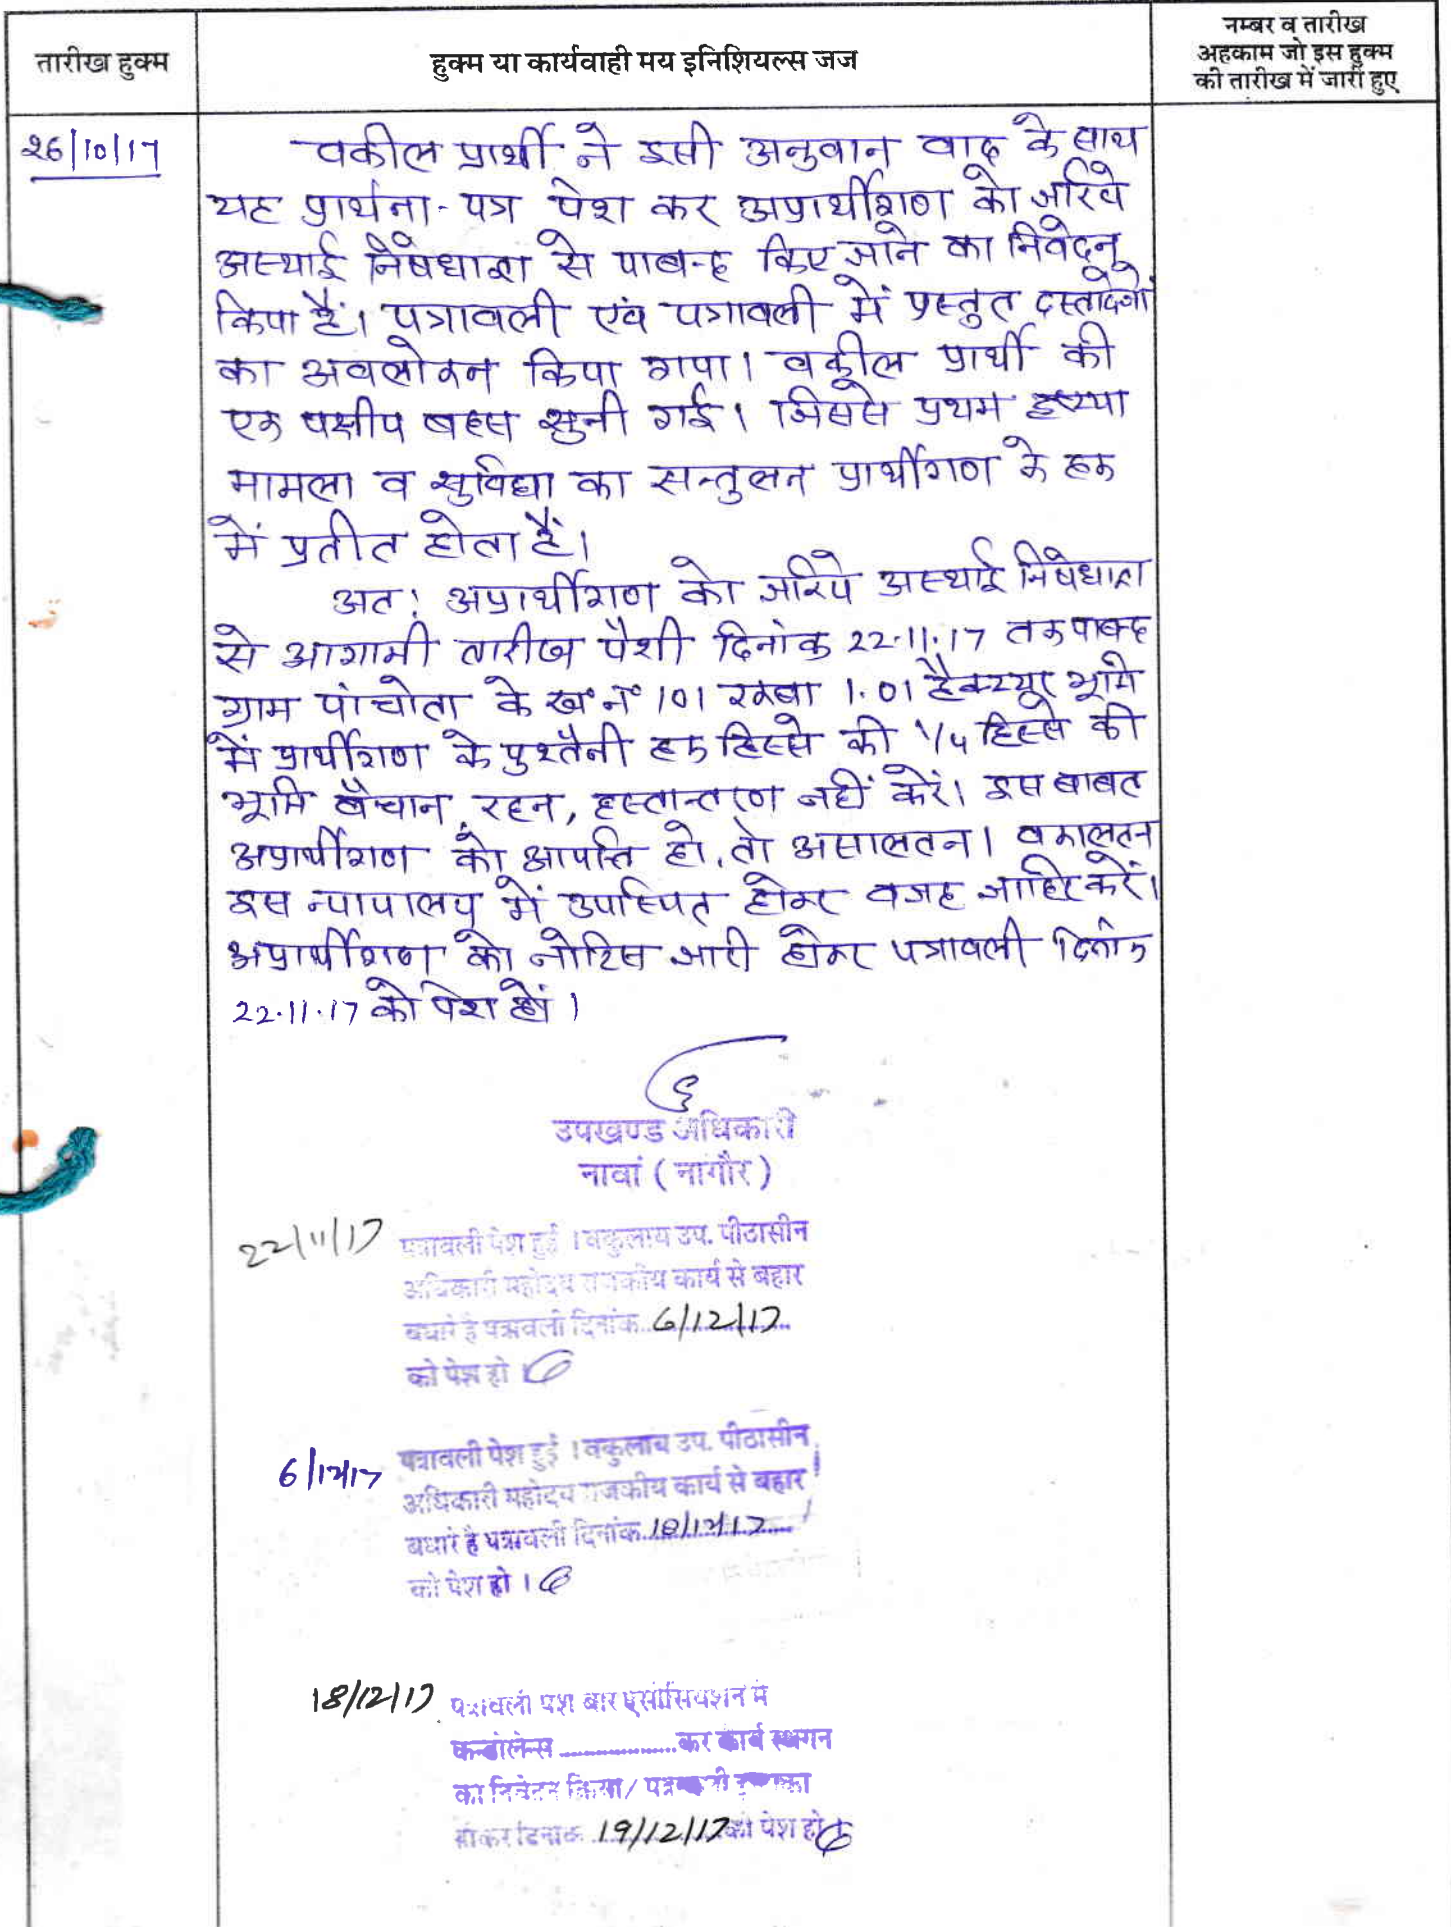 तारीख हुक्म
हुक्म या कार्यवाही मय इनिशियल्स जज
नम्बर व तारीख
अहकाम जो इस हुक्म
की तारीख में जारी हुए
26/10/17
वकील प्रार्थी ने इसी अनुवान वाद के साथ
यह प्रार्थना-पत्र पेश कर अप्रार्थीगण को जरिये
अस्थाई निषेधाज्ञा से पाबन्द किए जाने का निवेदन
किया हैं। पत्रावली एवं पत्रावली में प्रस्तुत दस्तावेजों
का अवलोकन किया गया। वकील प्रार्थी की
एक पक्षीय बहस सुनी गई। जिससे प्रथम दृष्टया
मामला व सुविधा का सन्तुलन प्रार्थीगण के हक
में प्रतीत होता हैं।
अत: अप्रार्थीगण को जरिये अस्थाई निषेधाज्ञा
से आगामी तारीख पैशी दिनांक 22.11.17 तक पाबन्द
ग्राम पांचोता के ख॰नं॰ 101 रकबा 1.01 हैक्टयूर भूमि
में प्रार्थीगण के पुश्तैनी हक हिस्से की 1/4 हिस्से की
भूमि बैचान, रहन, हस्तान्तरण नहीं करें। इस बाबत
अप्रार्थीगण को आपत्ति हो, तो असालतन। वकालतन
इस न्यायालय में उपस्थित होकर वजह जाहिर करें।
अप्रार्थीगण को नोटिस जारी होकर पत्रावली दिनांक
22.11.17 को पेश हों।
उपखण्ड अधिकारी
नावां (नागौर)
22/11/17 पत्रावली पेश हुई । वकुलाय उप. पीठासीन
अधिकारी महोदय राजकीय कार्य से बहार
बधारे है पत्रावली दिनांक 6/12/17
को पेश हो ।
6/12/17 पत्रावली पेश हुई । वकुलाय उप. पीठासीन
अधिकारी महोदय राजकीय कार्य से बहार
बधारे है पत्रावली दिनांक 18/12/17
को पेश हो ।
18/12/17 पत्रावली पेश बार एसोसियेशन मे
कन्डोलेन्स ............ कर कार्य स्थगन
का निवेदन किया/ पत्रावली
होकर दिनांक 19/12/17 को पेश हो